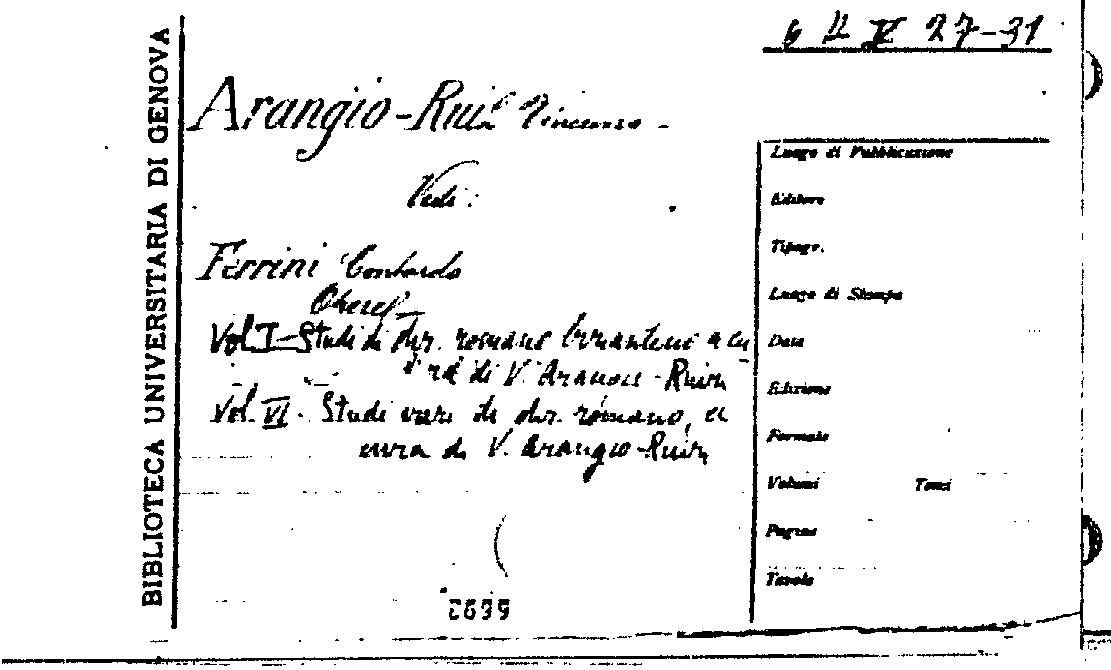 6 H V 27-31
BIBLIOTECA UNIVERSITARIA DI GENOVA
Arangio-Ruiz Vincenzo -
Vedi:
Ferrini Contardo
Opere
Vol I - Studi di dir. romano bizantino a cu
ra di V. Arangio-Ruiz
Vol. VI - Studi vari di dir. romano, a
cura di V. Arangio-Ruiz
Luogo di Pubblicazione
Editore
Tipogr.
Luogo di Stampa
Data
Edizione
Formato
Volumi Tomi
Pagine
Tavole